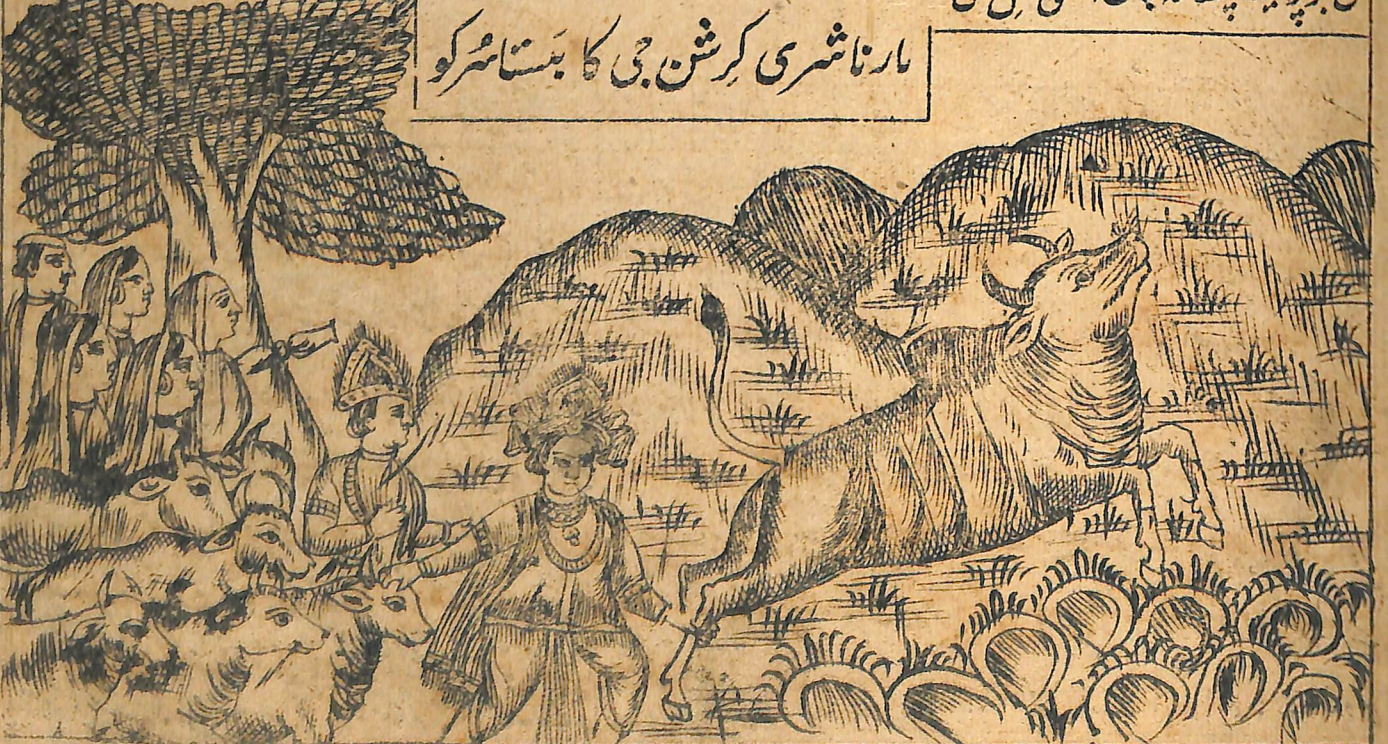 مارنا شری کرِشن جی کا بَستاسُر کو